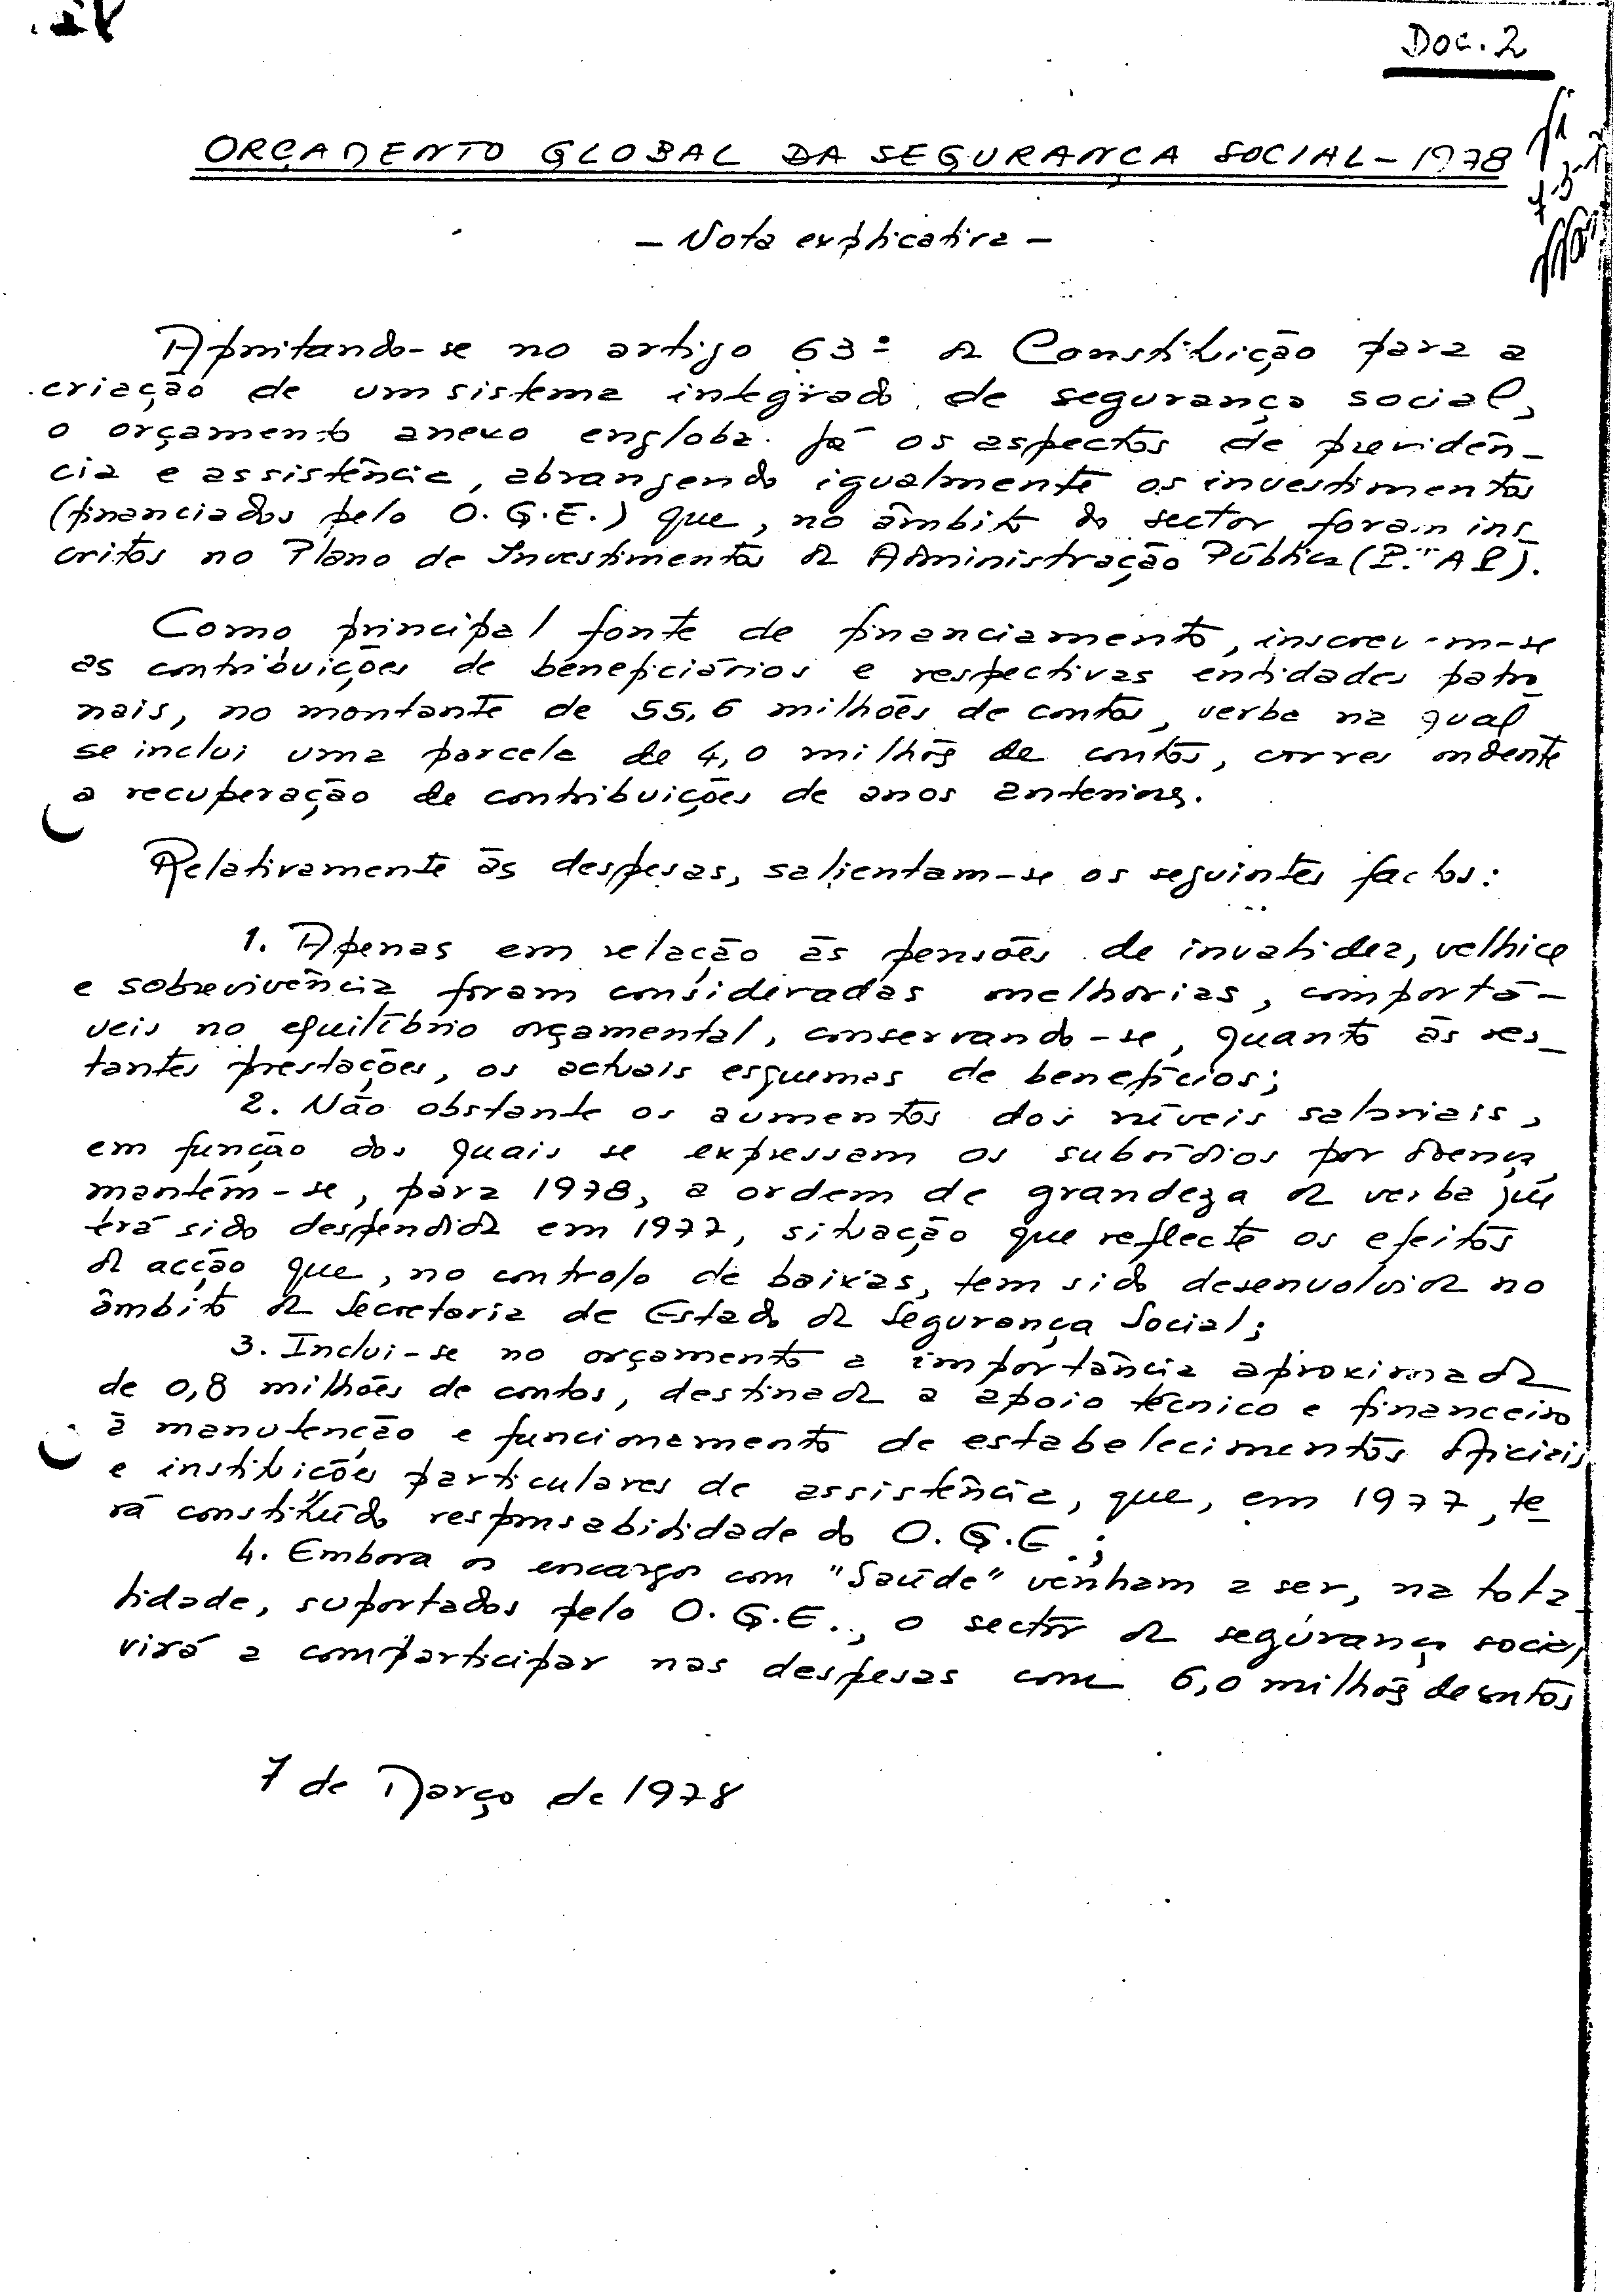 Doc. 2
ORÇAMENTO GLOBAL DA SEGURANÇA SOCIAL - 1978
- Nota explicativa -
Apontando-se no artigo 63º da Constituição para a
criação de um sistema integrado de segurança social,
o orçamento anexo engloba já os aspectos de previdên-
cia e assistência, abrangendo igualmente os investimentos
(financiados pelo O.G.E.) que, no âmbito do sector foram ins_
critos no Plano de Investimentos da Administração Pública (P.I.A.P.).
Como principal fonte de financiamento, inscrevem-se
as contribuições de beneficiários e respectivas entidades patro_
nais, no montante de 55,6 milhões de contos, verba na qual
se inclui uma parcela de 4,0 milhões de contos, correspondente
a recuperação de contribuições de anos anteriores.
Relativamente às despesas, salientam-se os seguintes factos:
1. Apenas em relação às pensões de invalidez, velhice
e sobrevivência foram consideradas melhorias, comportá-
veis no equilíbrio orçamental, conservando-se, quanto às res_
tantes prestações, os actuais esquemas de benefícios;
2. Não obstante os aumentos dos níveis salariais,
em função dos quais se expressam os subsídios por doença,
mantém-se, para 1978, a ordem de grandeza da verba que
terá sido despendida em 1977, situação que reflecte os efeitos
da acção que, no controlo de baixas, tem sido desenvolvida no
âmbito da Secretaria de Estado da Segurança Social;
3. Inclui-se no orçamento a importância aproximada
de 0,8 milhões de contos, destinada a apoio técnico e financeiro
à manutenção e funcionamento de estabelecimentos oficiais
e instituições particulares de assistência, que, em 1977, te_
rá constituído responsabilidade do O.G.E.;
4. Embora os encargos com "Saúde" venham a ser, na tota_
lidade, suportados pelo O.G.E., o sector da segurança social
virá a comparticipar nas despesas com 6,0 milhões de contos
7 de Março de 1978